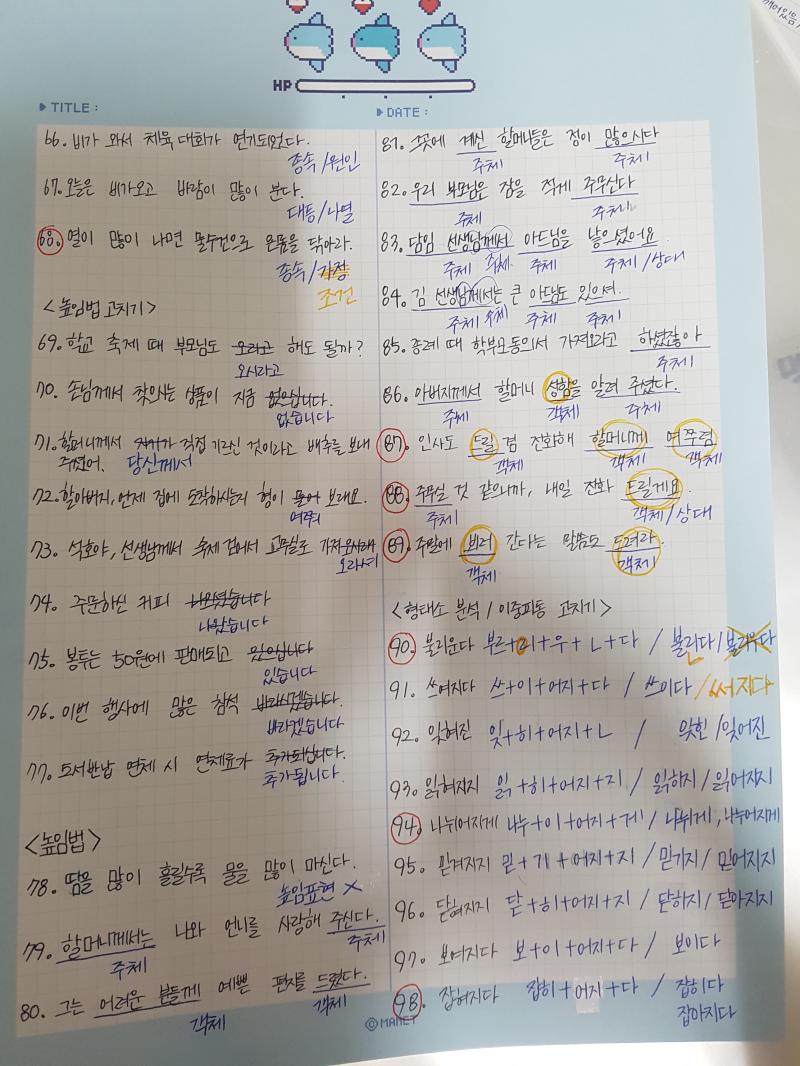 HP
TITLE :
66. 비가 와서 체육대회가 연기되었다.
종속/원인
67. 오늘은 비가오고 바람이 많이 분다.
대등/나열
68. 열이 많이 나면 물수건으로 온몸을 닦아라.
종속/가정
조건
<높임법 고치기>
69. 학교 축제 때 부모님도 오라고 해도 될까?
오시라고
70. 손님께서 찾으시는 상품이 지금 없으십니다.
없습니다
71. 할머니께서 자기가 직접 기르신 것이라고 배추를 보내
주셨어. 당신께서
72. 할아버지, 언제 집에 도착하시는지 형이 물어 보래요.
여쭤
73. 석호야, 선생님께서 축제 끝나서 교무실로 가져오시래
오라셔
74. 주문하신 커피 나오셨습니다
나왔습니다
75. 봉투는 50원에 판매되고 있으십니다
있습니다
76. 이번 행사에 많은 참석 바라시겠습니다.
바라겠습니다
77. 도서반납 연체 시 연체료가 추가되십니다.
추가됩니다.
<높임법>
78. 땀을 많이 흘릴수록 물을 많이 마신다.
높임표현 X
79. 할머니께서는 나와 언니를 사랑해 주신다.
주체 주체
80. 그는 어려운 분들께 예쁜 편지를 드렸다.
객체 객체
DATE :
81. 곳에 계신 할머니들은 정이 많으시다
주체 주체
82. 우리 부모님은 잠을 적게 주무신다
주체 주체
83. 담임 선생님께서 아드님을 낳으셨어요
주체 주체 주체 주체/상대
84. 김 선생님께서는 큰 아드님도 있으셔.
주체 주체 주체 주체
85. 종례 때 학부모동의서 가져오라고 하셨잖아
주체
86. 아버지께서 할머니 성함을 알려 주셨다.
주체 객체 주체
87. 인사도 드릴 겸 전화해 할머니께 여쭤렴
객체 객체 객체
88. 주무실 것 같으니까, 내일 전화 드릴게요.
주체 객체/상대
89. 주말에 뵈러 간다는 말씀도 드려라.
객체 객체
<형태소 분석 / 이중피동 고치기>
90. 불리운다 부르+이+우+ㄴ+다 / 불린다/불리우다
91. 쓰여지다 쓰+이+어지+다 / 쓰이다/써지다
92. 잊혀진 잊+히+어지+ㄴ / 잊힌/잊어진
93. 읽혀지지 읽+히+어지+지 / 읽히지/읽어지지
94. 나뉘어지게 나누+이+어지+게/ 나뉘게, 나누어지게
95. 믿겨지지 믿+기+어지+지 / 믿기지/ 믿어지지
96. 닫혀지지 닫+히+어지+지 / 닫히지/ 닫아지지
97. 보여지다 보+이+어지+다/ 보이다
98. 잡혀지다 잡히+어지+다 / 잡히다
잡아지다
ⓒMANET